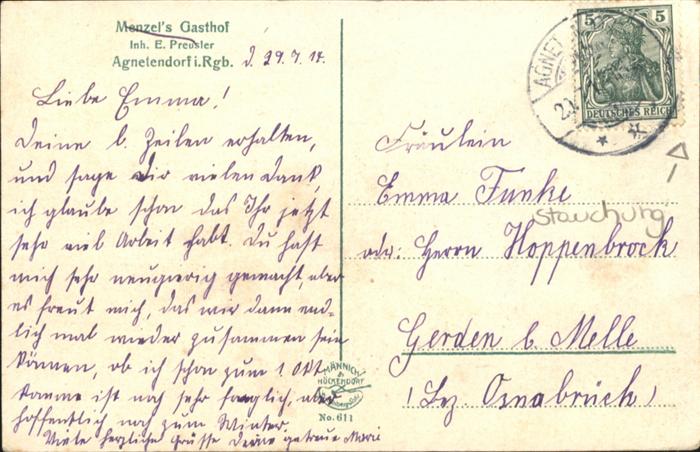 Menzel's Gasthof
Inh. E. Preusler
Agnetendorf i. Rgb.
d. 29.7.14.
Liebe Emma!
Deine l. Zeilen erhalten,
und sage Dir vielen Dank,
ich glaube schon das Ihr jetzt
sehr viel Arbeit habt. Du hast
mich sehr neugierig gemacht, aber
es freut mich, das wir dann end-
lich mal wieder zusammen sein
können, ob ich schon zum 1 Okt.
komme ist noch sehr fraglich, aber
hoffentlich noch zum Winter.
Viele herzliche Grüsse Deine getreue Marie
MÄNNICH
&
HÖCKENDORF
No. 611
AGNET
5 5
DEUTSCHES REICH
Fräulein
Emma Funke
Stauchung
adr: Herrn Hoppenbrock
Gerden b. Melle
(Bez. Osnabrück)